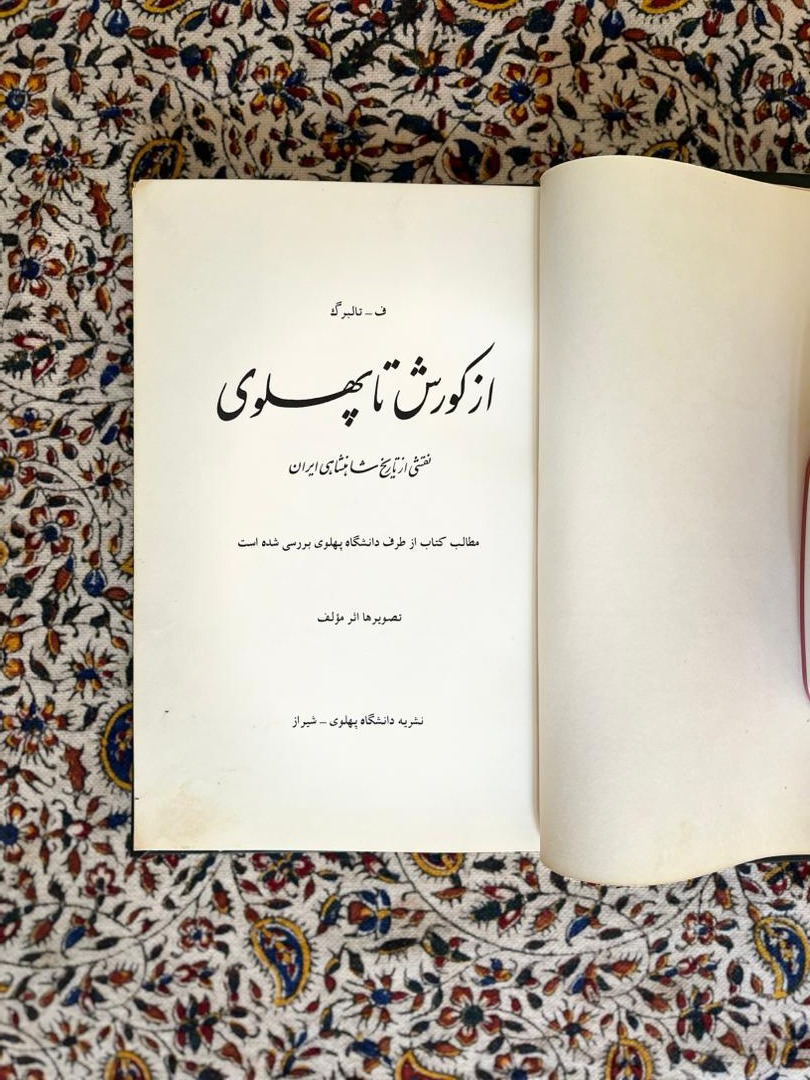 ف - تالبرگ
از کورش تا پهلوی
نقشی از تاریخ شاهنشاهی ایران
مطالب کتاب از طرف دانشگاه پهلوی بررسی شده است
تصویرها اثر مؤلف
نشریه دانشگاه پهلوی - شیراز